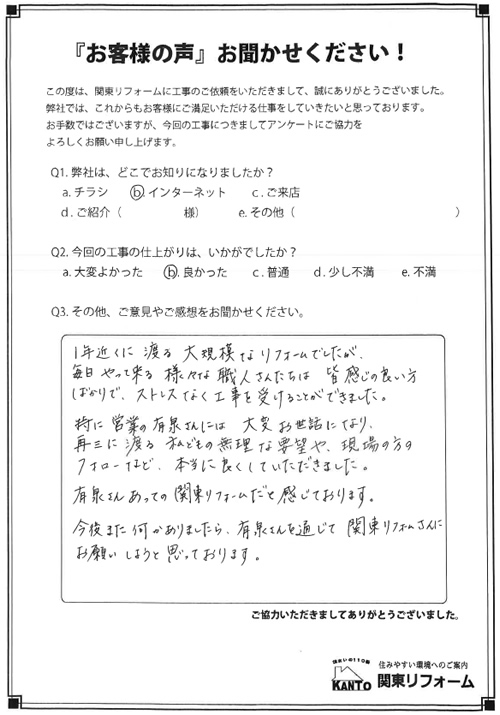 『お客様の声』お聞かせください！
この度は、関東リフォームに工事のご依頼をいただきまして、誠にありがとうございました。
弊社では、これからもお客様にご満足いただける仕事をしていきたいと思っております。
お手数ではございますが、今回の工事につきましてアンケートにご協力を
よろしくお願い申し上げます。
Q1. 弊社は、どこでお知りになりましたか？
a. チラシ b. インターネット c. ご来店
d. ご紹介（ 様） e. その他（ ）
Q2. 今回の工事の仕上がりは、いかがでしたか？
a. 大変よかった b. 良かった c. 普通 d. 少し不満 e. 不満
Q3. その他、ご意見やご感想をお聞かせください。
1年近くに渡る大規模なリフォームでしたが、
毎日やって来る様々な職人さんたちは皆感じの良い方
ばかりで、ストレスなく工事を受けることができました。
特に営業の有泉さんには大変お世話になり、
再三に渡る私どもの無理な要望や、現場の方の
フォローなど、本当に良くしていただきました。
有泉さんあっての関東リフォームだと感じております。
今後また何かありましたら、有泉さんを通じて関東リフォームさんに
お願いしようと思っております。
ご協力いただきましてありがとうございました。
住まいの110番
KANTO
住みやすい環境へのご案内
関東リフォーム